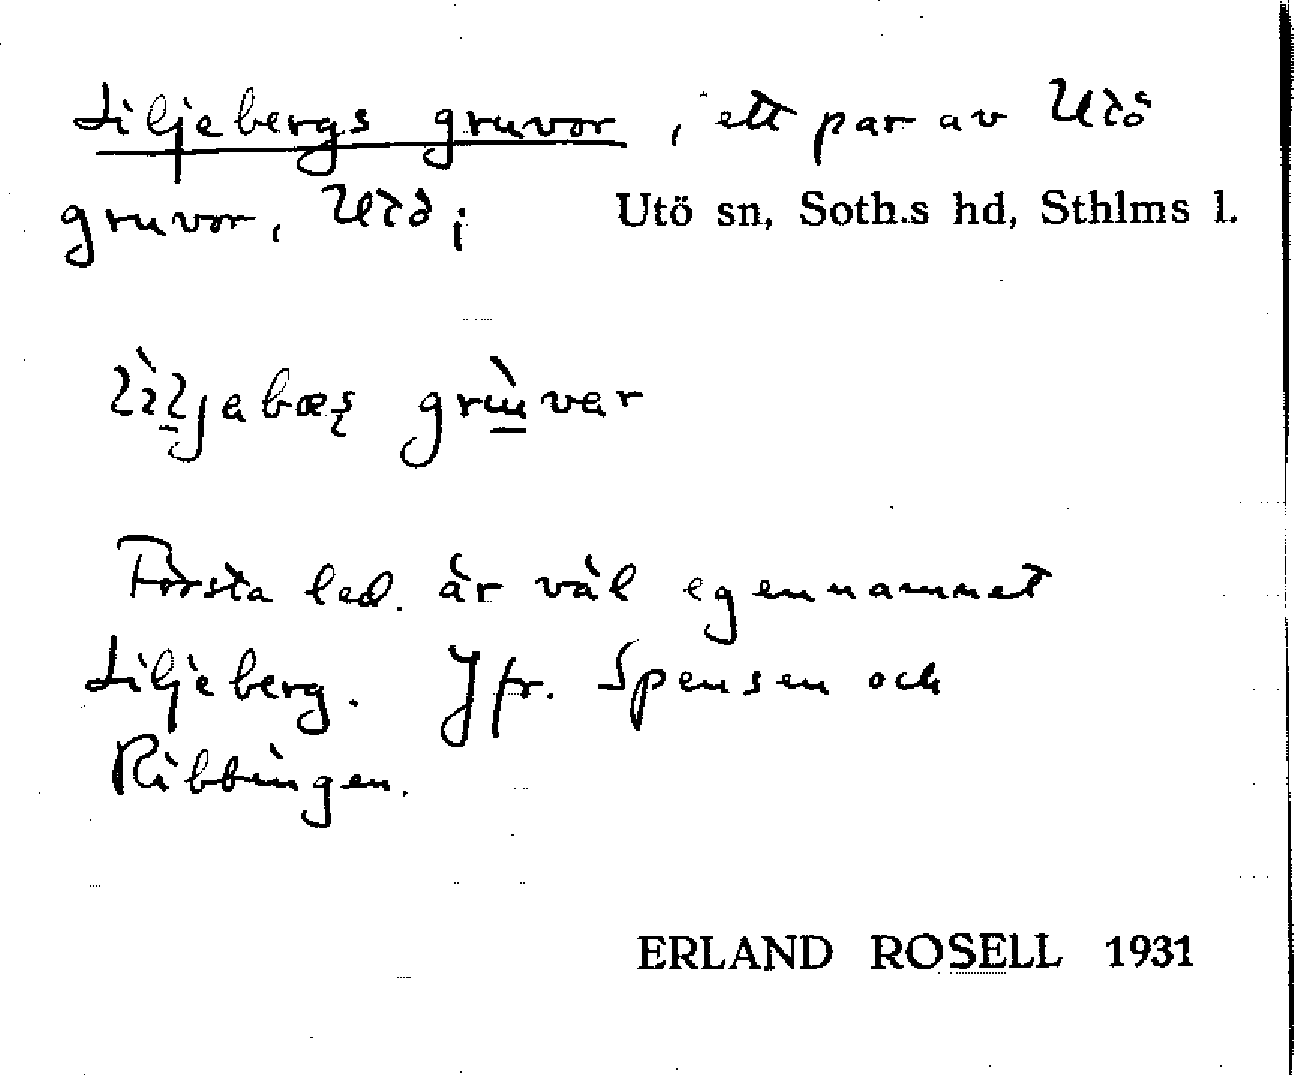 Liljebergs gruvor, ett par av Utö
gruvor, Utö; Utö sn, Soth.s hd, Sthlms l.
lìljabæʂ grùvar
Första led. är väl egennamnet
Liljeberg. Jfr. Spensen och
Ribbingen.
ERLAND ROSELL 1931